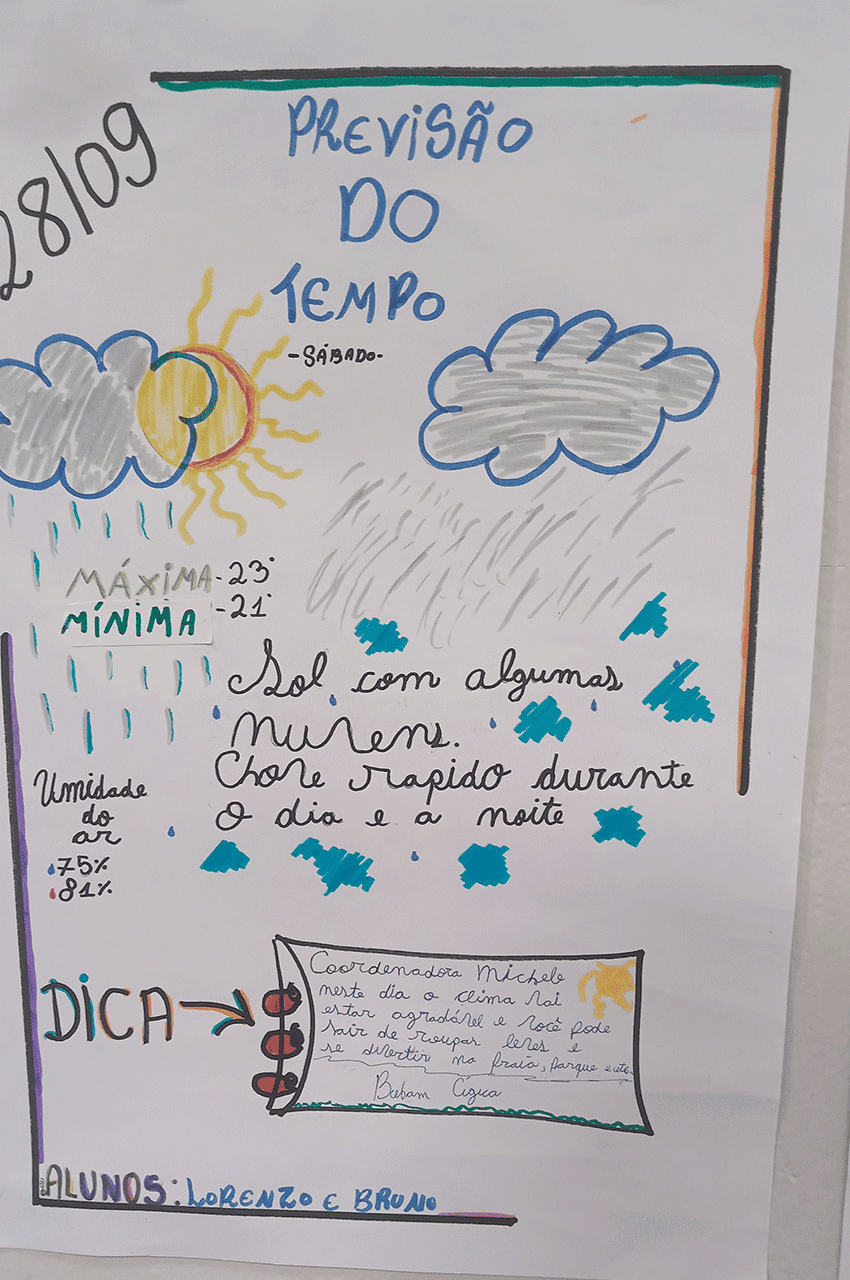 28/09
PREVISÃO
DO
TEMPO
-SÁBADO-
MÁXIMA-23°
MÍNIMA-21°
Sol com algumas
nuvens.
Chove rapido durante
o dia e a noite
Umidade
do
ar
75%
81%
DICA
Coordenadora Michele
neste dia o clima vai
estar agradável e você pode
sair de roupas leves e
se divertir na praia, parque e etc.
Bebam
ALUNOS: LORENZO E BRUNO